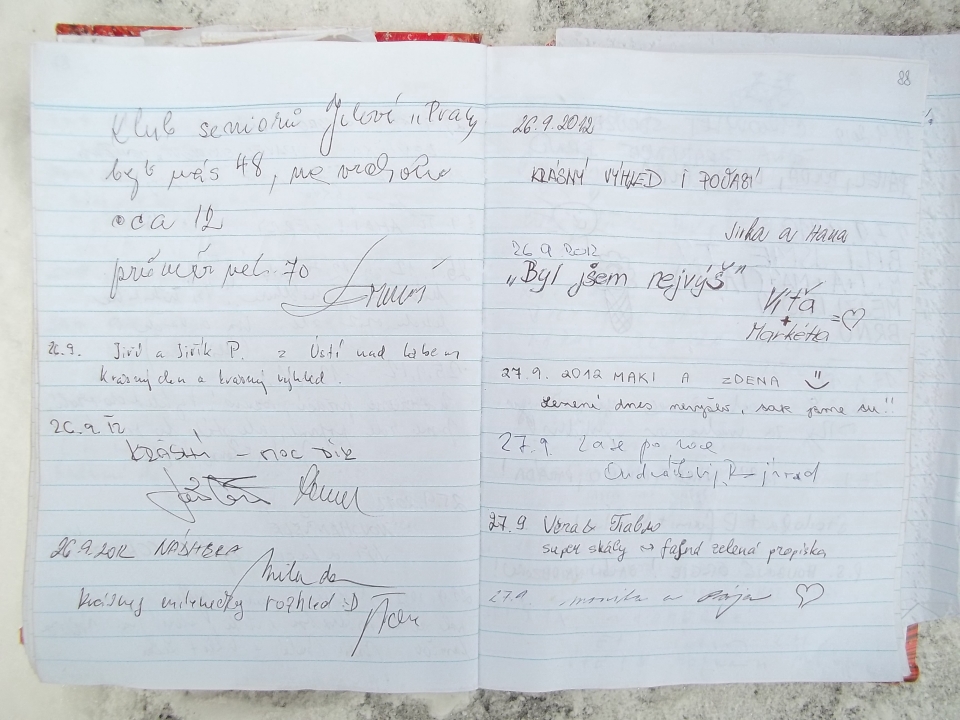 Klub seniorů Jílové u Prahy
bylo nás 48, na vrcholu
cca 12
průměr věk. 70
26.9. Jiří a Jiřík P. z Ústí nad Labem
Krásný den a krásný výhled.
26.9.12
KRÁSNÍ - MOC DÍK
26.9.2012 NÁDHERA
Milada
Krásnej milenecky rozhled :D
88
26.9.2012
KRÁSNÝ VÝHLED I POČASÍ
Jirka a Hana
26.9.2012
„Byl jsem nejvýš"
Víťa
+
Markéta = ♡
27.9. 2012 MAKI A ZDENA
Lezení dnes nevyšlo, sak jsme su!!
27.9. Zase po roce
27.9
super skály → fajná zelená propiska
27.9. Monika a Pája ♡